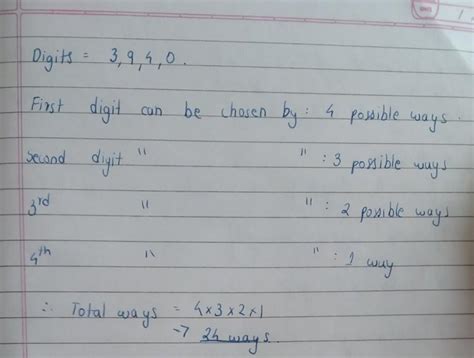 Digits = 3, 9, 4, 0.
First digit can be chosen by : 4 possible ways.
second digit " " : 3 possible ways
3rd " " : 2 possible ways
4th " " : 1 way
∴ Total ways = 4×3×2×1
→ 24 ways.